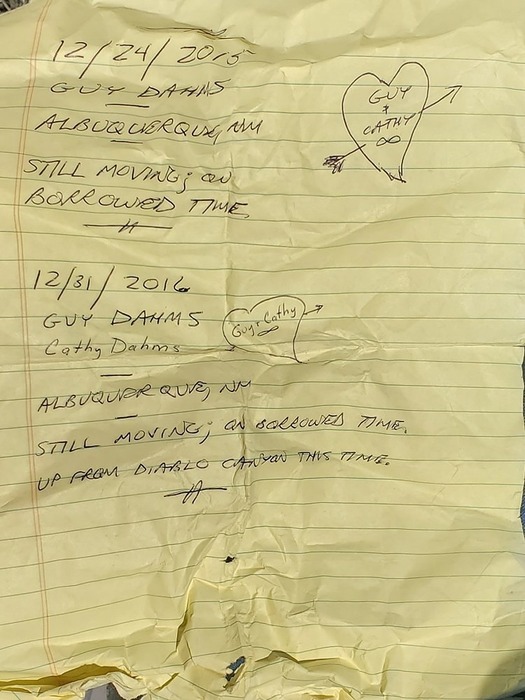 12/24/2015
GUY DAHMS
ALBUQUERQUE, NM
STILL MOVING; ON
BORROWED TIME.
GUY
+
CATHY
∞
12/31/2016
GUY DAHMS
Cathy Dahms
Guy + Cathy
∞
ALBUQUERQUE, NM
STILL MOVING; ON BORROWED TIME.
UP FROM DIABLO CANYON THIS TIME.